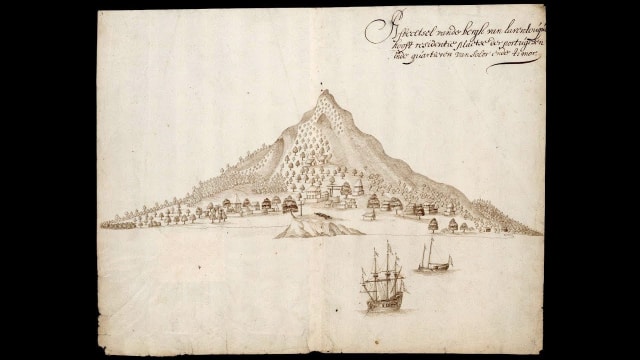 Afbeetsel van de bergh van Larentouque
hooft residentie plaetse der portugesen
inde quartieren van Solor ende Timor